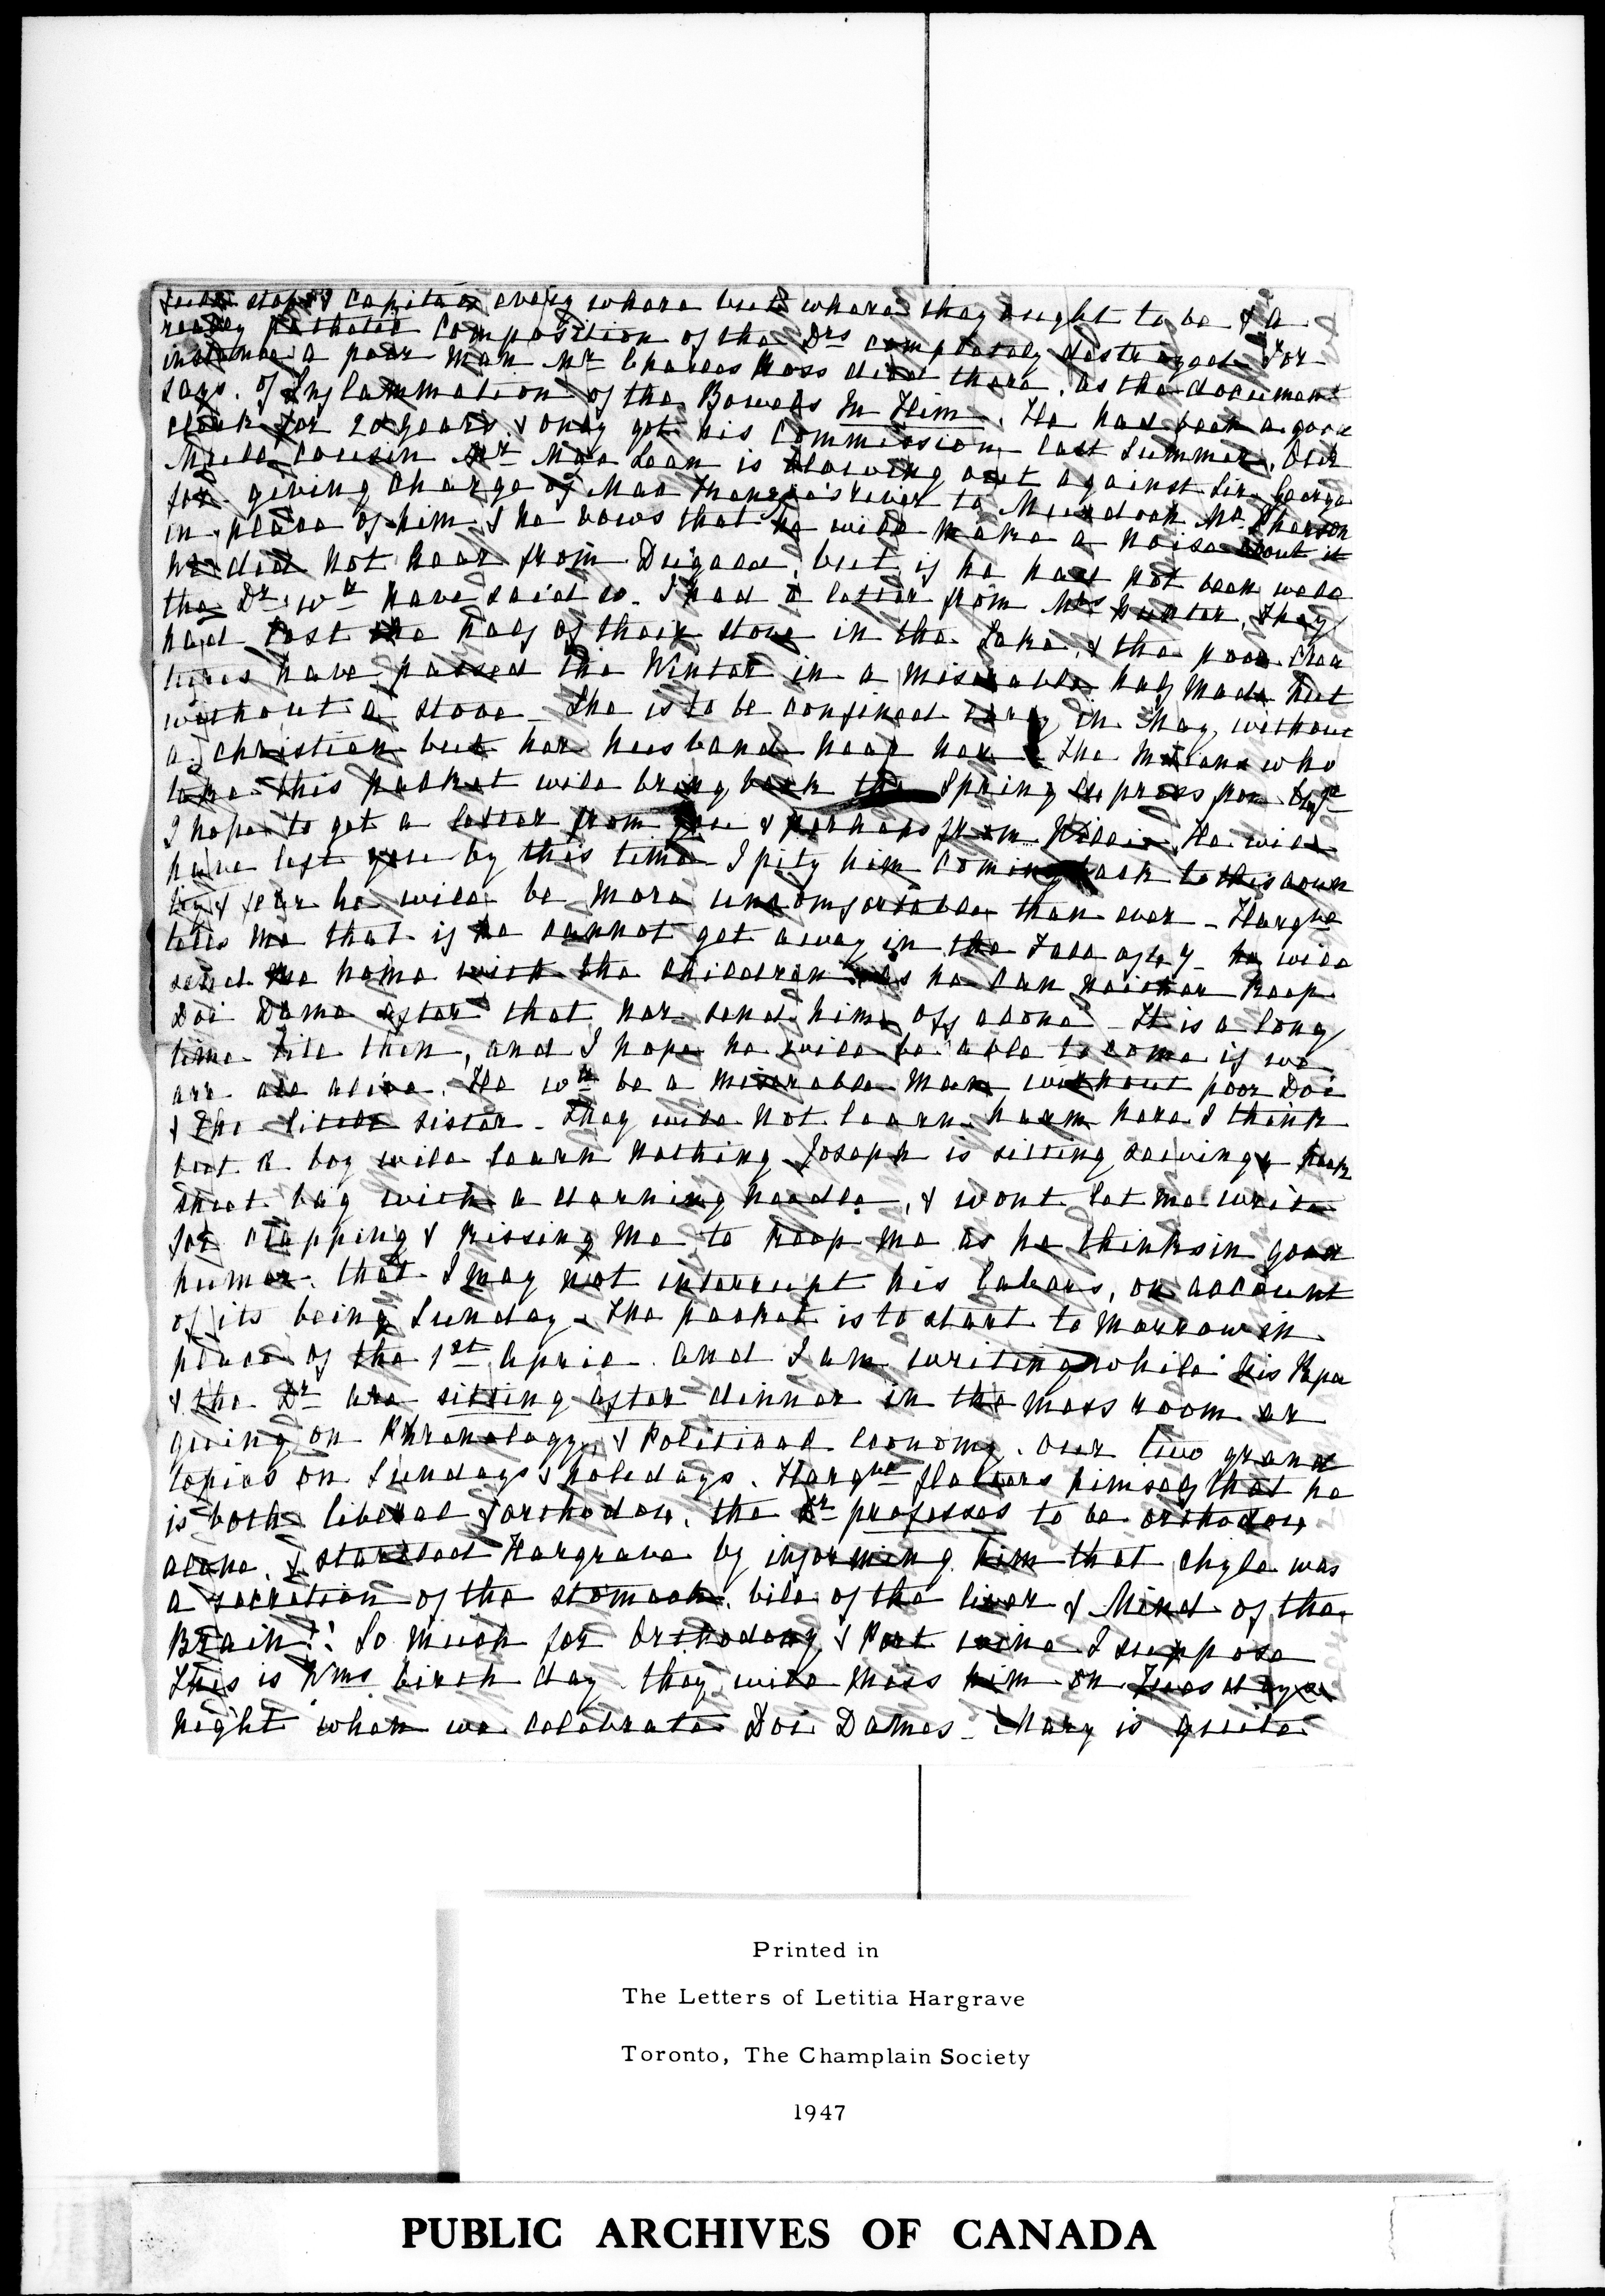 full stops & capitals every where but where they ought to be & a
really pathetic composition of the Drs completely destroyed. For
instance a poor man Mr Charles Ross died there, as the document
says. of Inflammation of the Bowels In Him. He had been a good
clerk for 20 years. & only got his Commission last Summer. Our
Mull cousin Mr Mac Lean is blowing out against Sir George
for giving charge of Mac Kenzie's river to Murdoch McPherson
in place of him & he vows that he will make a noise about it
We did not hear from Dugald, but if he had not been well
the Dr wd have said so. I had a letter from Mrs Hunter, they
had lost the half of their stove in the Lake, & the poor crea
tures have passed the Winter in a miserable half made hut
without a stove _ She is to be confined early in May, without
a christian but her husband near her _ The Indians who
take this packet will bring back the Spring express from
I hope to get a letter from you & perhaps from Willie. He will
have left you by this time _ I pity him coming back to this coun
try & fear he will be more uncomfortable than ever _ Hargve
tells me that if he cannot get away in the Fall of 47 _ he will
send me home with the children as he can neither keep
Doi Dame after that nor send him off alone _ It is a long
time till then, and I hope he will be able to come if we
are all alive. He wd be a miserable man without poor Doi
& the little sister _ They will not learn harm here I think
but a boy will learn nothing Joseph is sitting sewing a
shot bag with a darning needle, & wont let me write
for clapping & kissing me to keep me as he thinks in good
humor. that I may not interrupt his labors, on account
of its being Sunday. The packet is to start to morrow in
place of the 1st April. and I am writing while his Papa
& the Dr are sitting after dinner in the mess room or
going on Phrenology, & Political Economy. our two grand
topics on Sundays & holidays. Hargve flatters himself that he
is both liberal & orthodox, the Dr professes to be orthodox
alone. & startled Hargrave by informing him that chyle was
a secretion of the stomach. bile of the liver & Mind of the
Brain!! So much for Orthodoxy & Port wine I suppose
This is Wms birth day they will miss him on Tuesday
night when we celebrate Doi Dames _ Mary is quite
Printed in
The Letters of Letitia Hargrave
Toronto, The Champlain Society
1947
PUBLIC ARCHIVES OF CANADA